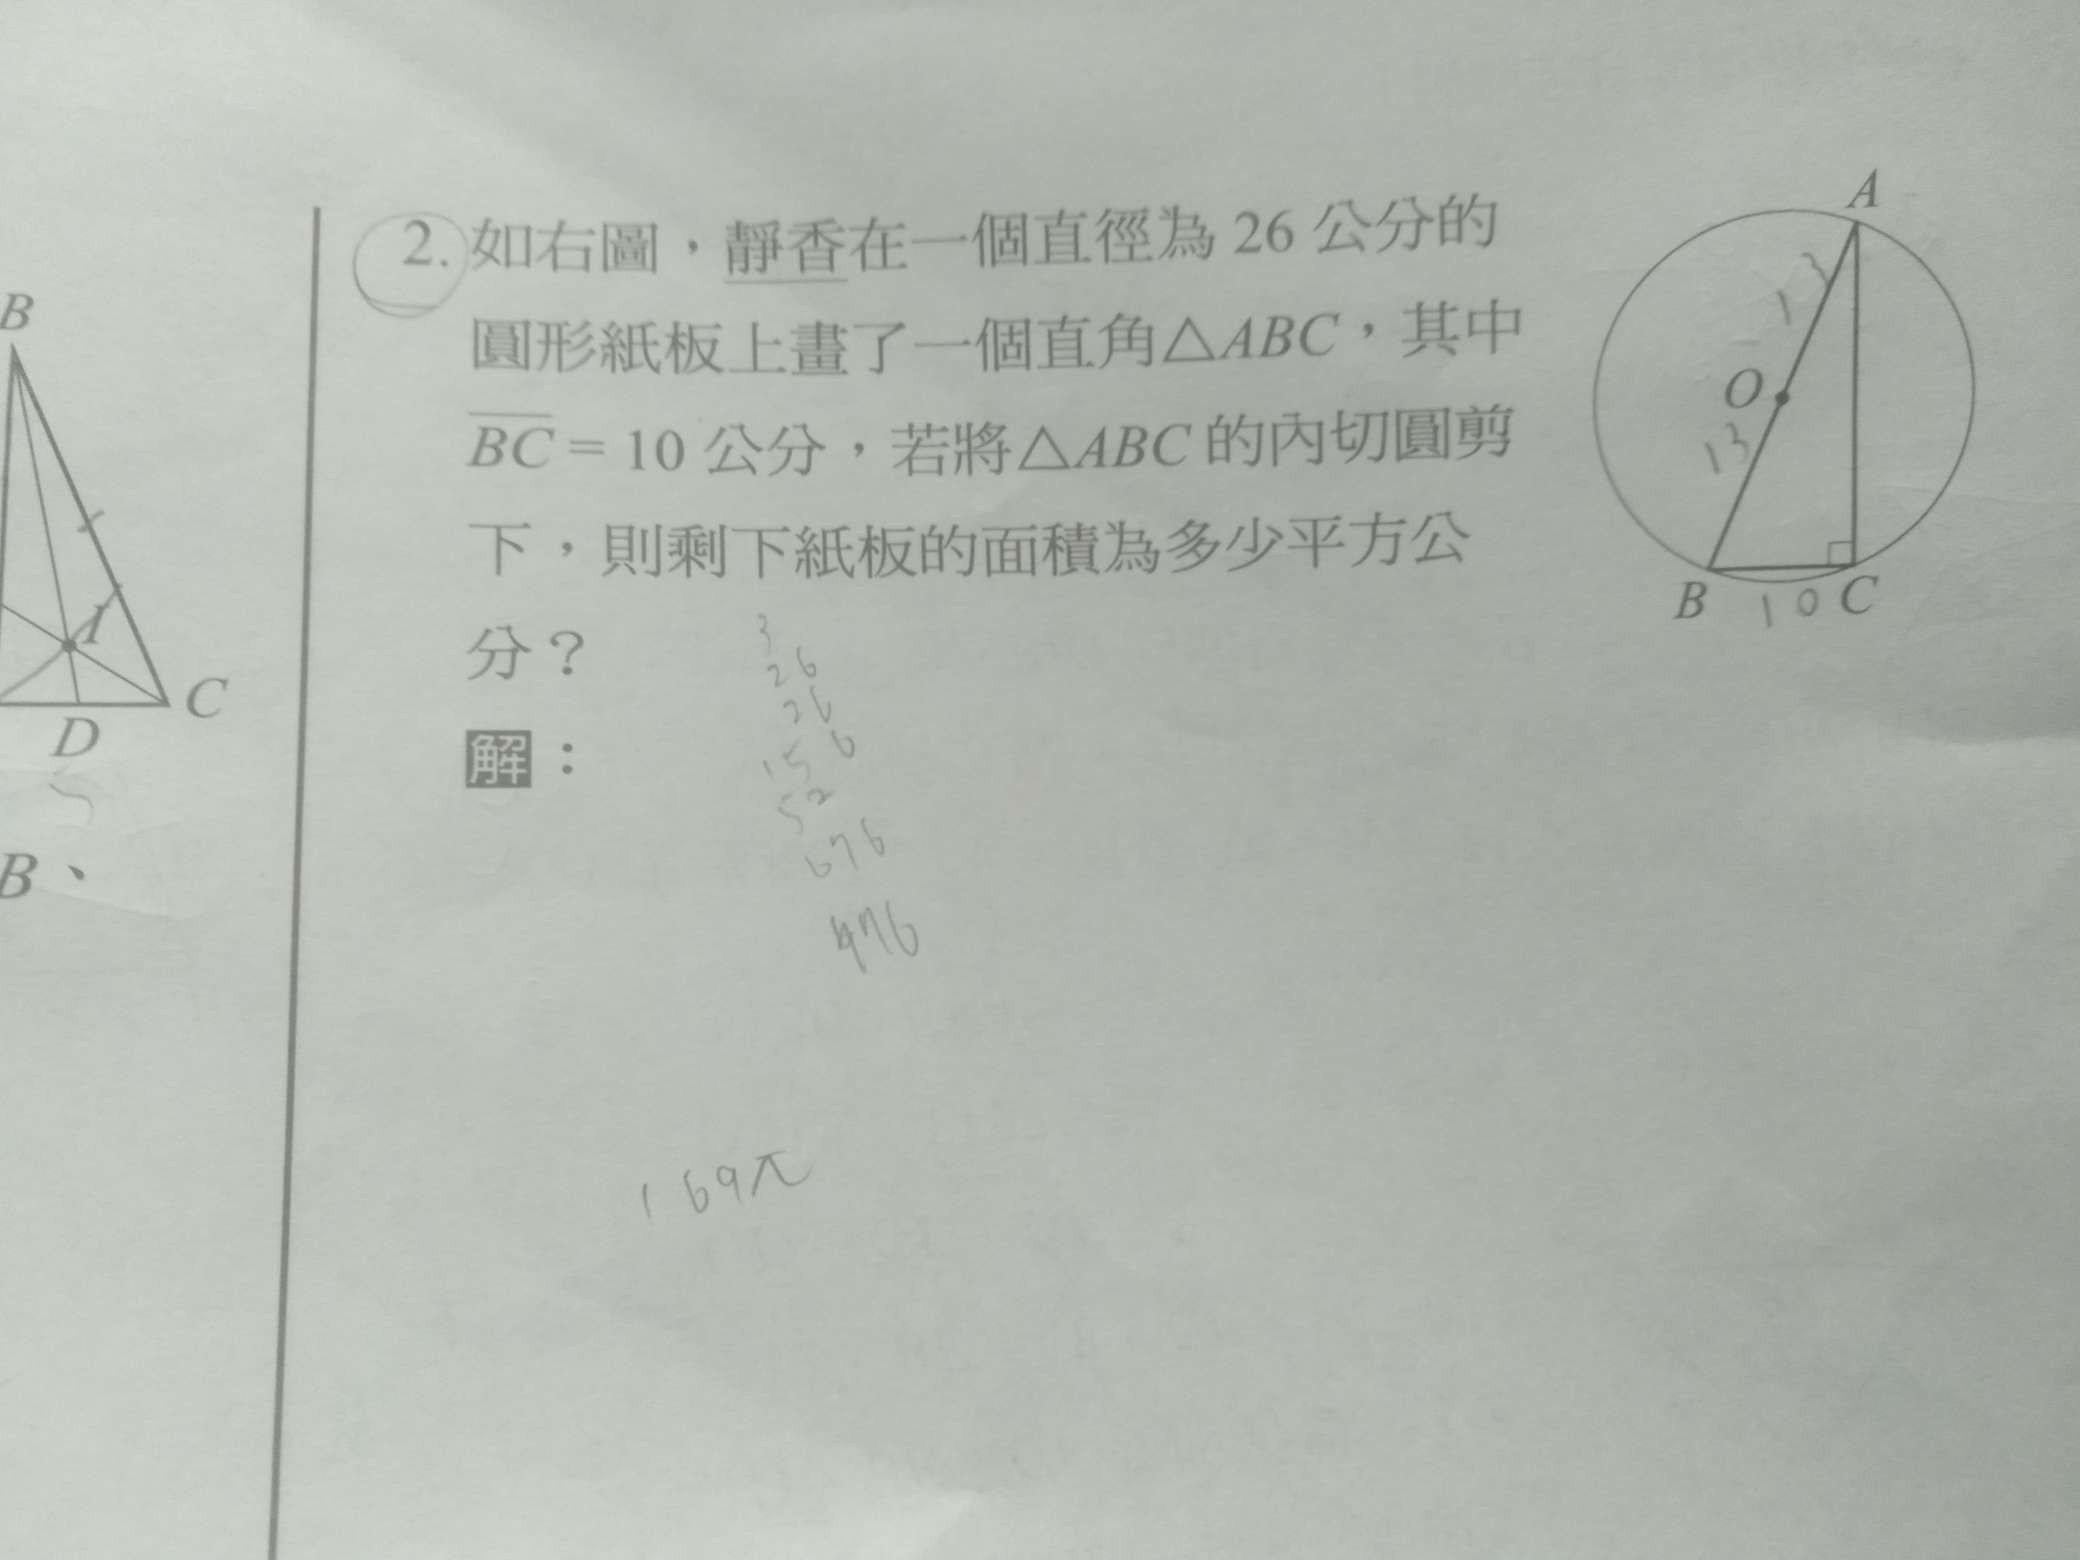 2. 如右圖，靜香在一個直徑為 26 公分的
圓形紙板上畫了一個直角△ABC，其中
BC = 10 公分，若將△ABC 的內切圓剪
下，則剩下紙板的面積為多少平方公
分？
解：
3
26
26
156
52
676
476
169π
A
13
O
13
B
10
C
B
I
C
D
5
B、